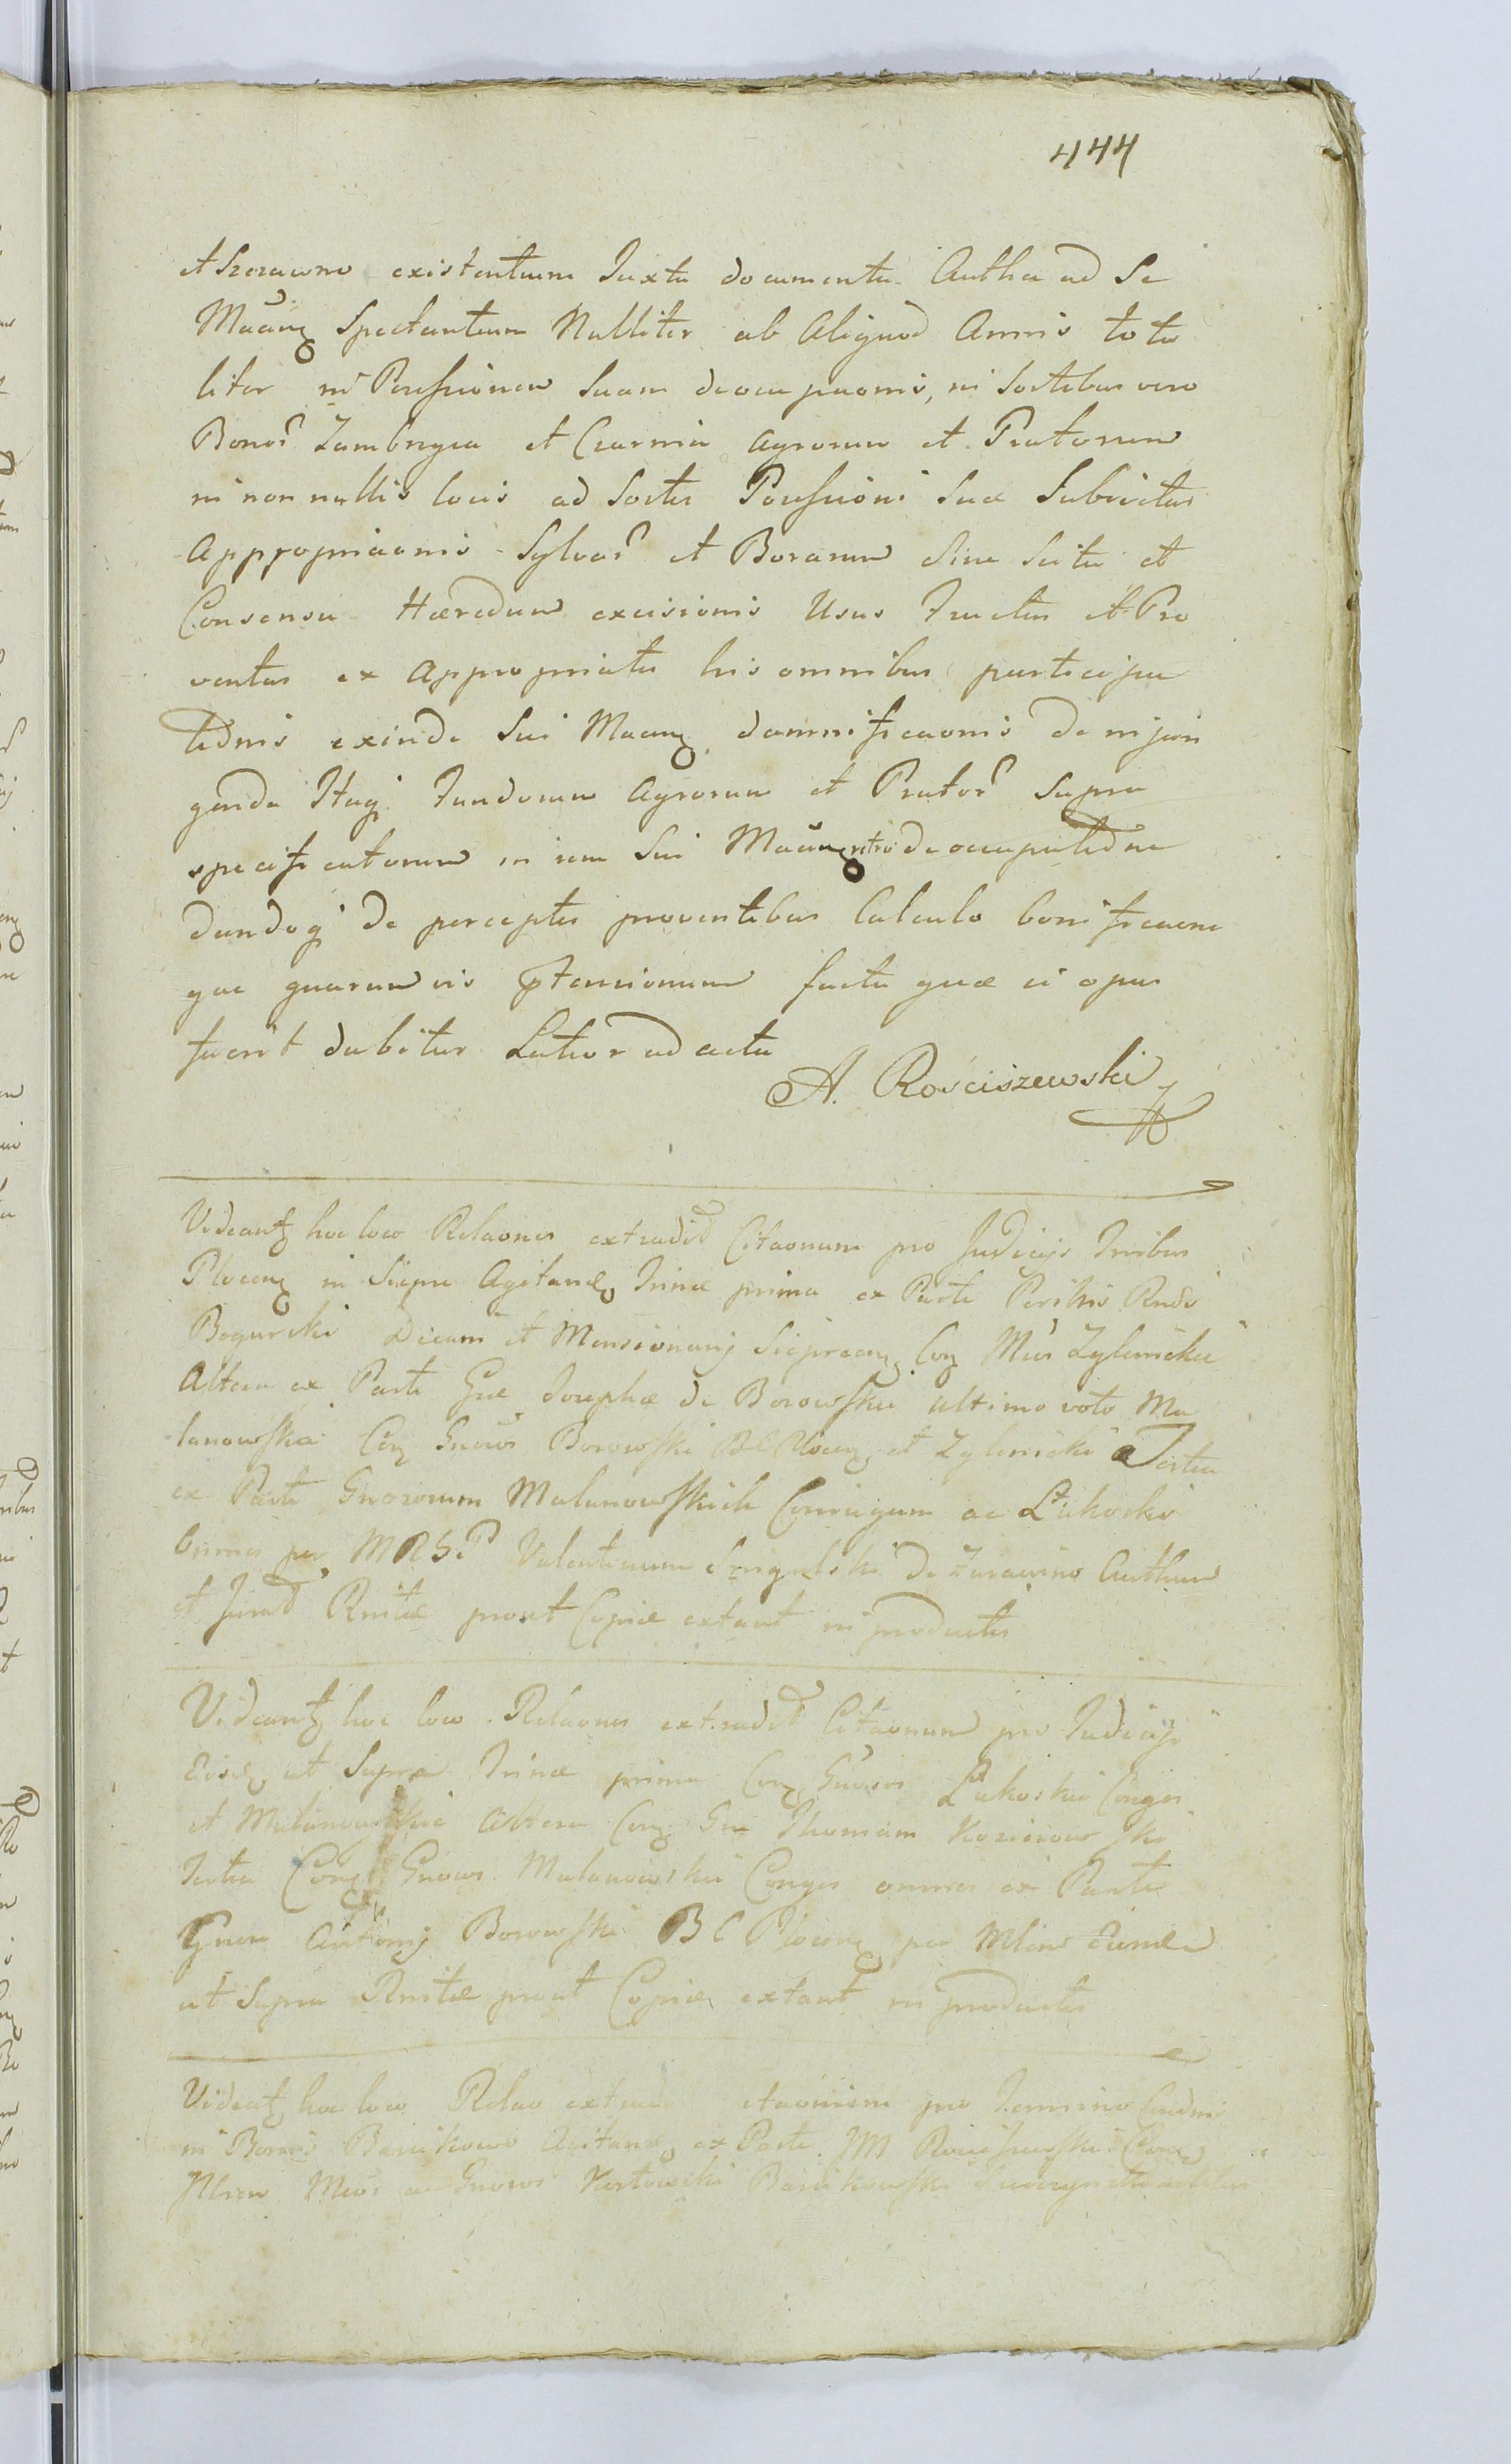 444
et Szczawno existentium Juxta documenta Autha ad Se
Mãang Spectantium Nulliter ab Aliquod Annis tota
liter in Possessionem suam deocupaonis, in Sortibus vero
Bonor Zambrzyca et Czarnia Agrorum et Pratorum
in non nullis locis ad Sortes Possessioni suæ Subiectas
Appropriaonis Sylvar et Borarum Sine Scitu et
Consensu Hæredum excisionis Usus Fructus et Pro
ventus ex Appropriatis his omnibus participa
tionis exinde Sui Maang damnificaonis de injun
genda Itaq Fundorum Agrorum et Prator Supra
specificatorum in rem Sui Mãang retro deoccupatione
dandoq de perceptis proventibus Calculo bonificaone
que quarumvis prtensionum facta quæ ei opus
fuerit dabitur Latior ad acta
A. Rościszewski
Videantz hoc loco Relaones extradit Citaonum pro Judicijs Tribus
Plocen in Siepre Agitan Trinæ prima ex Parte Perillris Rndi
Bogurski Decani et Mansionarij Sieprcen Con Mcos Zylinickie
Altera ex Parte Gnæ Josephæ de Borowskie ultimo voto Ma
lanowska Con Gnosos Borowski B C Plocen et Zylinicki Tertia
ex Parte Gnosorum Malanowskich Coniugum ac Łukoski
omnes per MRSP Valentinum Szrigelski de Zurawino Authum
et Jurat Rnitæ prout Copiæ extant in productis
Videantz hoc loco Relaones extradit Citaonum pro Judicijs
Eisd ut Supra Trinæ prima Con Gnosos Łukoskie Conges
et Malanowskie Altera Con Gn Thomam Kozierowski
Tertia Con Gnosos Malanowskie Conges omnes ex Parte
Gnosi Antonij Borowski B C Plocen per Mlem Eund
ut Supra Rnitæ prout Copiæ extant in productis
Videatz hoc loco Relao extrad itaonum pro Termino Condni
in Bonis Barcikowo Agitan ex Parte JM Rosciszewski Con
Illrem Mcos ac Gnosos Karłowski Barcikowski